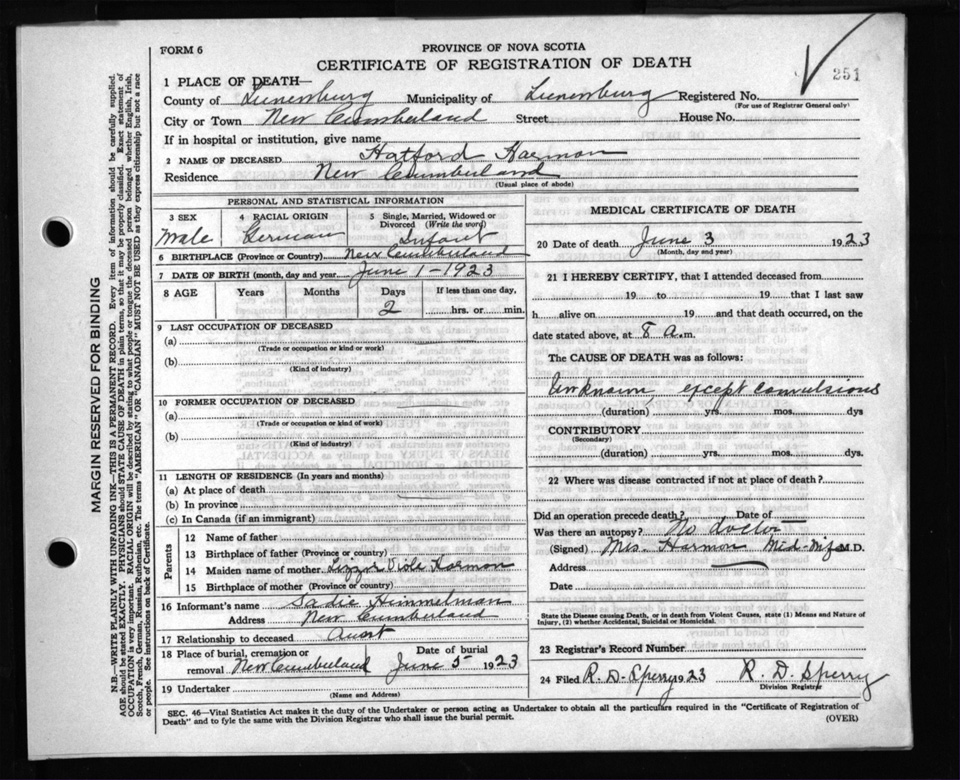 FORM 6
PROVINCE OF NOVA SCOTIA
CERTIFICATE OF REGISTRATION OF DEATH
251
1 PLACE OF DEATH—
County of Lunenburg Municipality of Lunenburg Registered No.
(For use of Registrar General only)
City or Town New Cumberland Street House No.
If in hospital or institution, give name
2 NAME OF DECEASED Hatford Harmon
Residence New Cumberland
(Usual place of abode)
PERSONAL AND STATISTICAL INFORMATION
3 SEX 4 RACIAL ORIGIN 5 Single, Married, Widowed or Divorced (Write the word)
Male German Infant
6 BIRTHPLACE (Province or Country) New Cumberland
7 DATE OF BIRTH (month, day and year) June 1-1923
8 AGE Years Months Days If less than one day,
2 hrs. or min.
9 LAST OCCUPATION OF DECEASED
(a)
(Trade or occupation or kind or work)
(b)
(Kind of industry)
10 FORMER OCCUPATION OF DECEASED
(a)
(Trade or occupation or kind of work)
(b)
(Kind of industry)
11 LENGTH OF RESIDENCE (In years and months)
(a) At place of death
(b) In province
(c) In Canada (if an immigrant)
Parents
12 Name of father
13 Birthplace of father (Province or country)
14 Maiden name of mother Harmon
15 Birthplace of mother (Province or country)
16 Informant's name Sadie Himmelman
Address New Cumberland
17 Relationship to deceased Aunt
18 Place of burial, cremation or removal New Cumberland Date of burial June 5 1923
19 Undertaker
(Name and Address)
MEDICAL CERTIFICATE OF DEATH
20 Date of death June 3 1923
(Month, day and year)
21 I HEREBY CERTIFY, that I attended deceased from
19 to 19 that I last saw
h alive on 19 and that death occurred, on the
date stated above, at 8 a.m.
The CAUSE OF DEATH was as follows:
Unknown, except convulsions
(duration) yrs. mos. dys
CONTRIBUTORY
(Secondary)
(duration) yrs. mos. dys.
22 Where was disease contracted if not at place of death?
Did an operation precede death? Date of
Was there an autopsy? No doctor
(Signed) Mrs. Harmon Mid-wife M.D.
Address
Date
State the Disease causing Death, or in death from Violent Causes, state (1) Means and Nature of
Injury, (2) whether Accidental, Suicidal or Homicidal.
23 Registrar's Record Number
24 Filed R. D. Sperry 1923 R. D. Sperry
Division Registrar
SEC. 46—Vital Statistics Act makes it the duty of the Undertaker or person acting as Undertaker to obtain all the particulars required in the "Certificate of Registration of
Death" and to fyle the same with the Division Registrar who shall issue the burial permit.
(OVER)
MARGIN RESERVED FOR BINDING
N.B.—WRITE PLAINLY WITH UNFADING INK—THIS IS A PERMANENT RECORD. Every item of information should be carefully supplied.
AGE should be stated EXACTLY. PHYSICIANS should STATE CAUSE OF DEATH in plain terms, so that it may be properly classified. Exact statement of
OCCUPATION is very important. RACIAL ORIGIN will be described by stating to what people or tongue the deceased person belonged whether English, Irish,
Scotch, French, German, Russian, Ruthenian, etc. The terms "AMERICAN" OR "CANADIAN" MUST NOT BE USED as they express citizenship but not a race
or people. See instructions on back of Certificate.